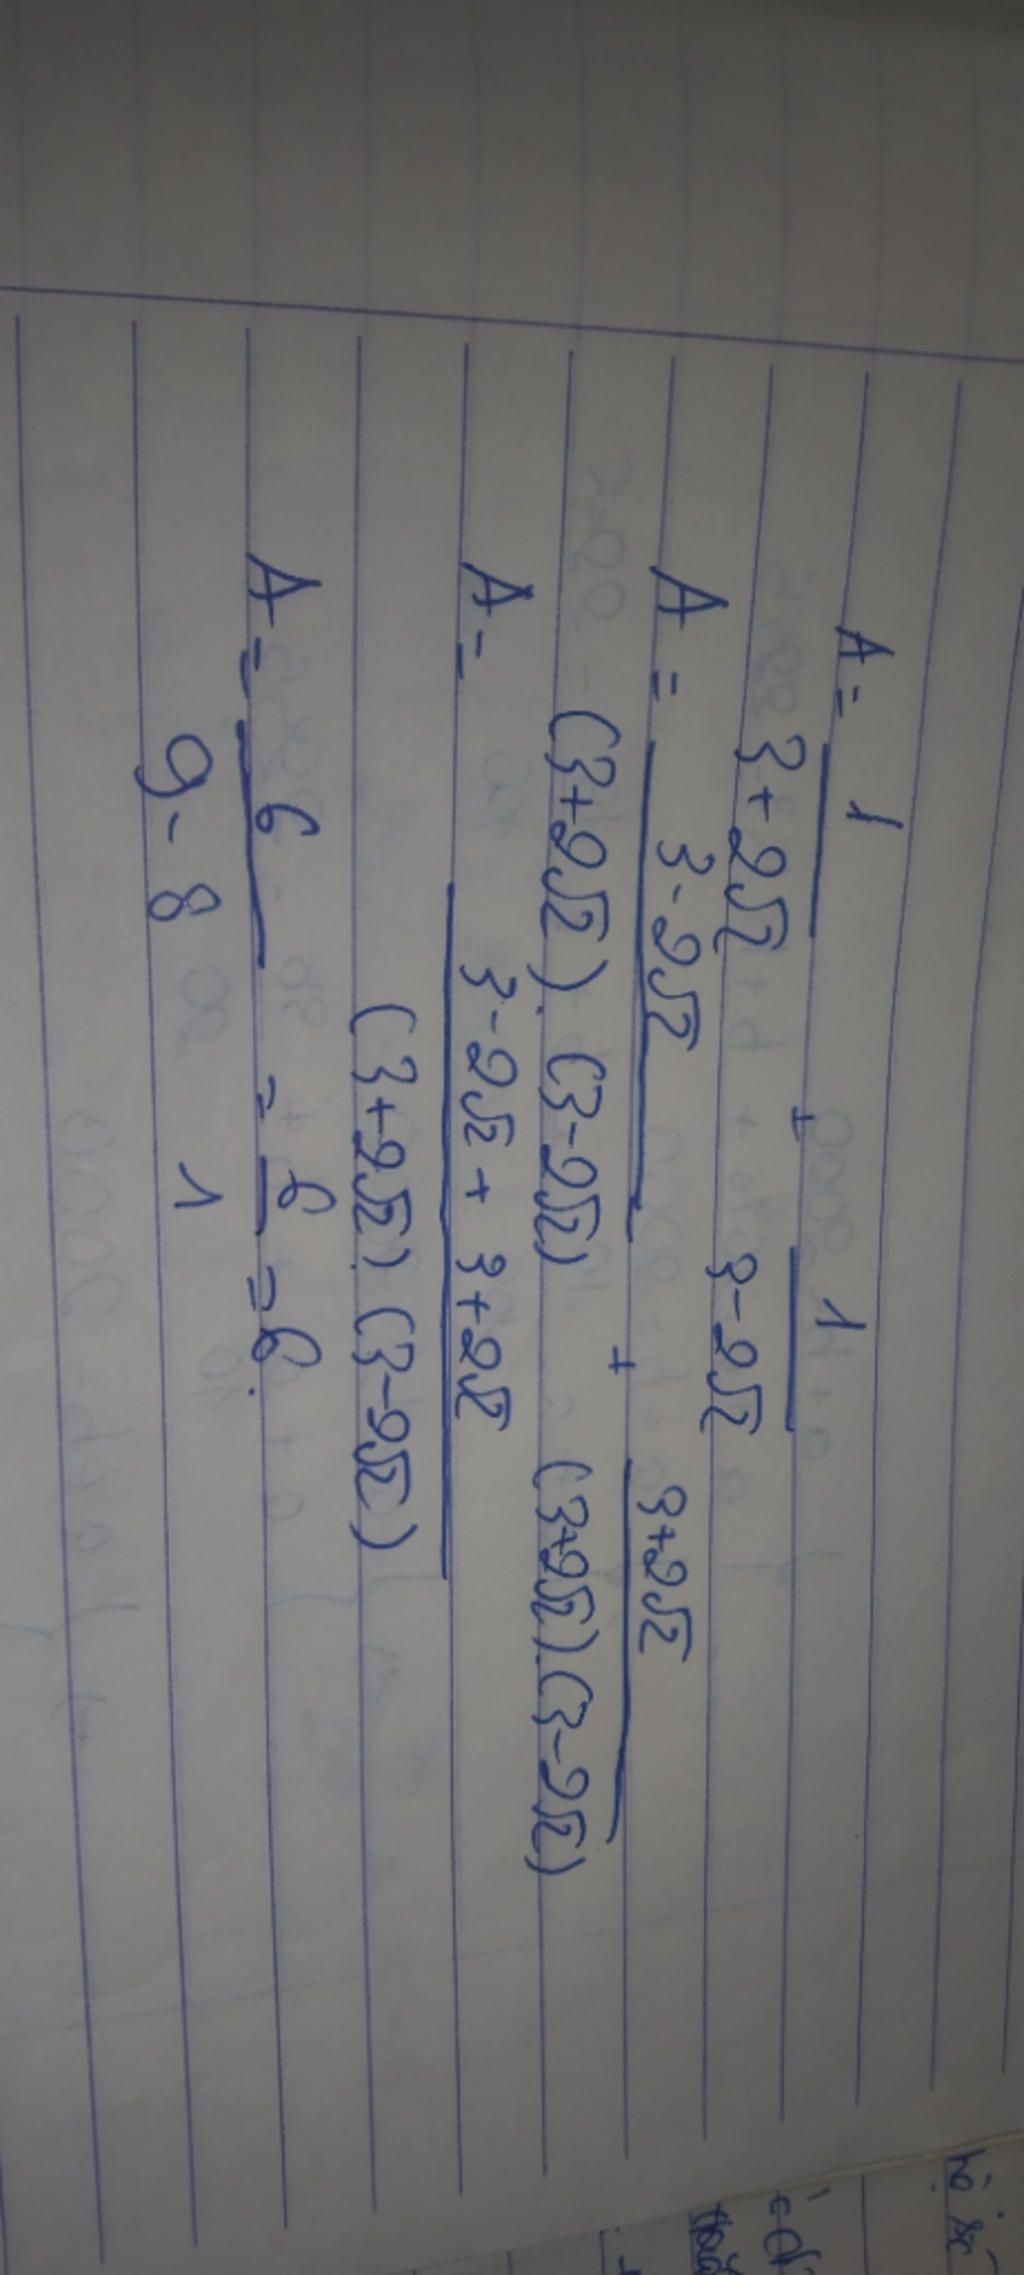 A = 1/(3+2√2) + 1/(3-2√2)
A = (3-2√2)/((3+2√2).(3-2√2)) + (3+2√2)/((3+2√2).(3-2√2))
A = (3-2√2 + 3+2√2)/((3+2√2).(3-2√2))
A = 6/(9-8) = 6/1 = 6.